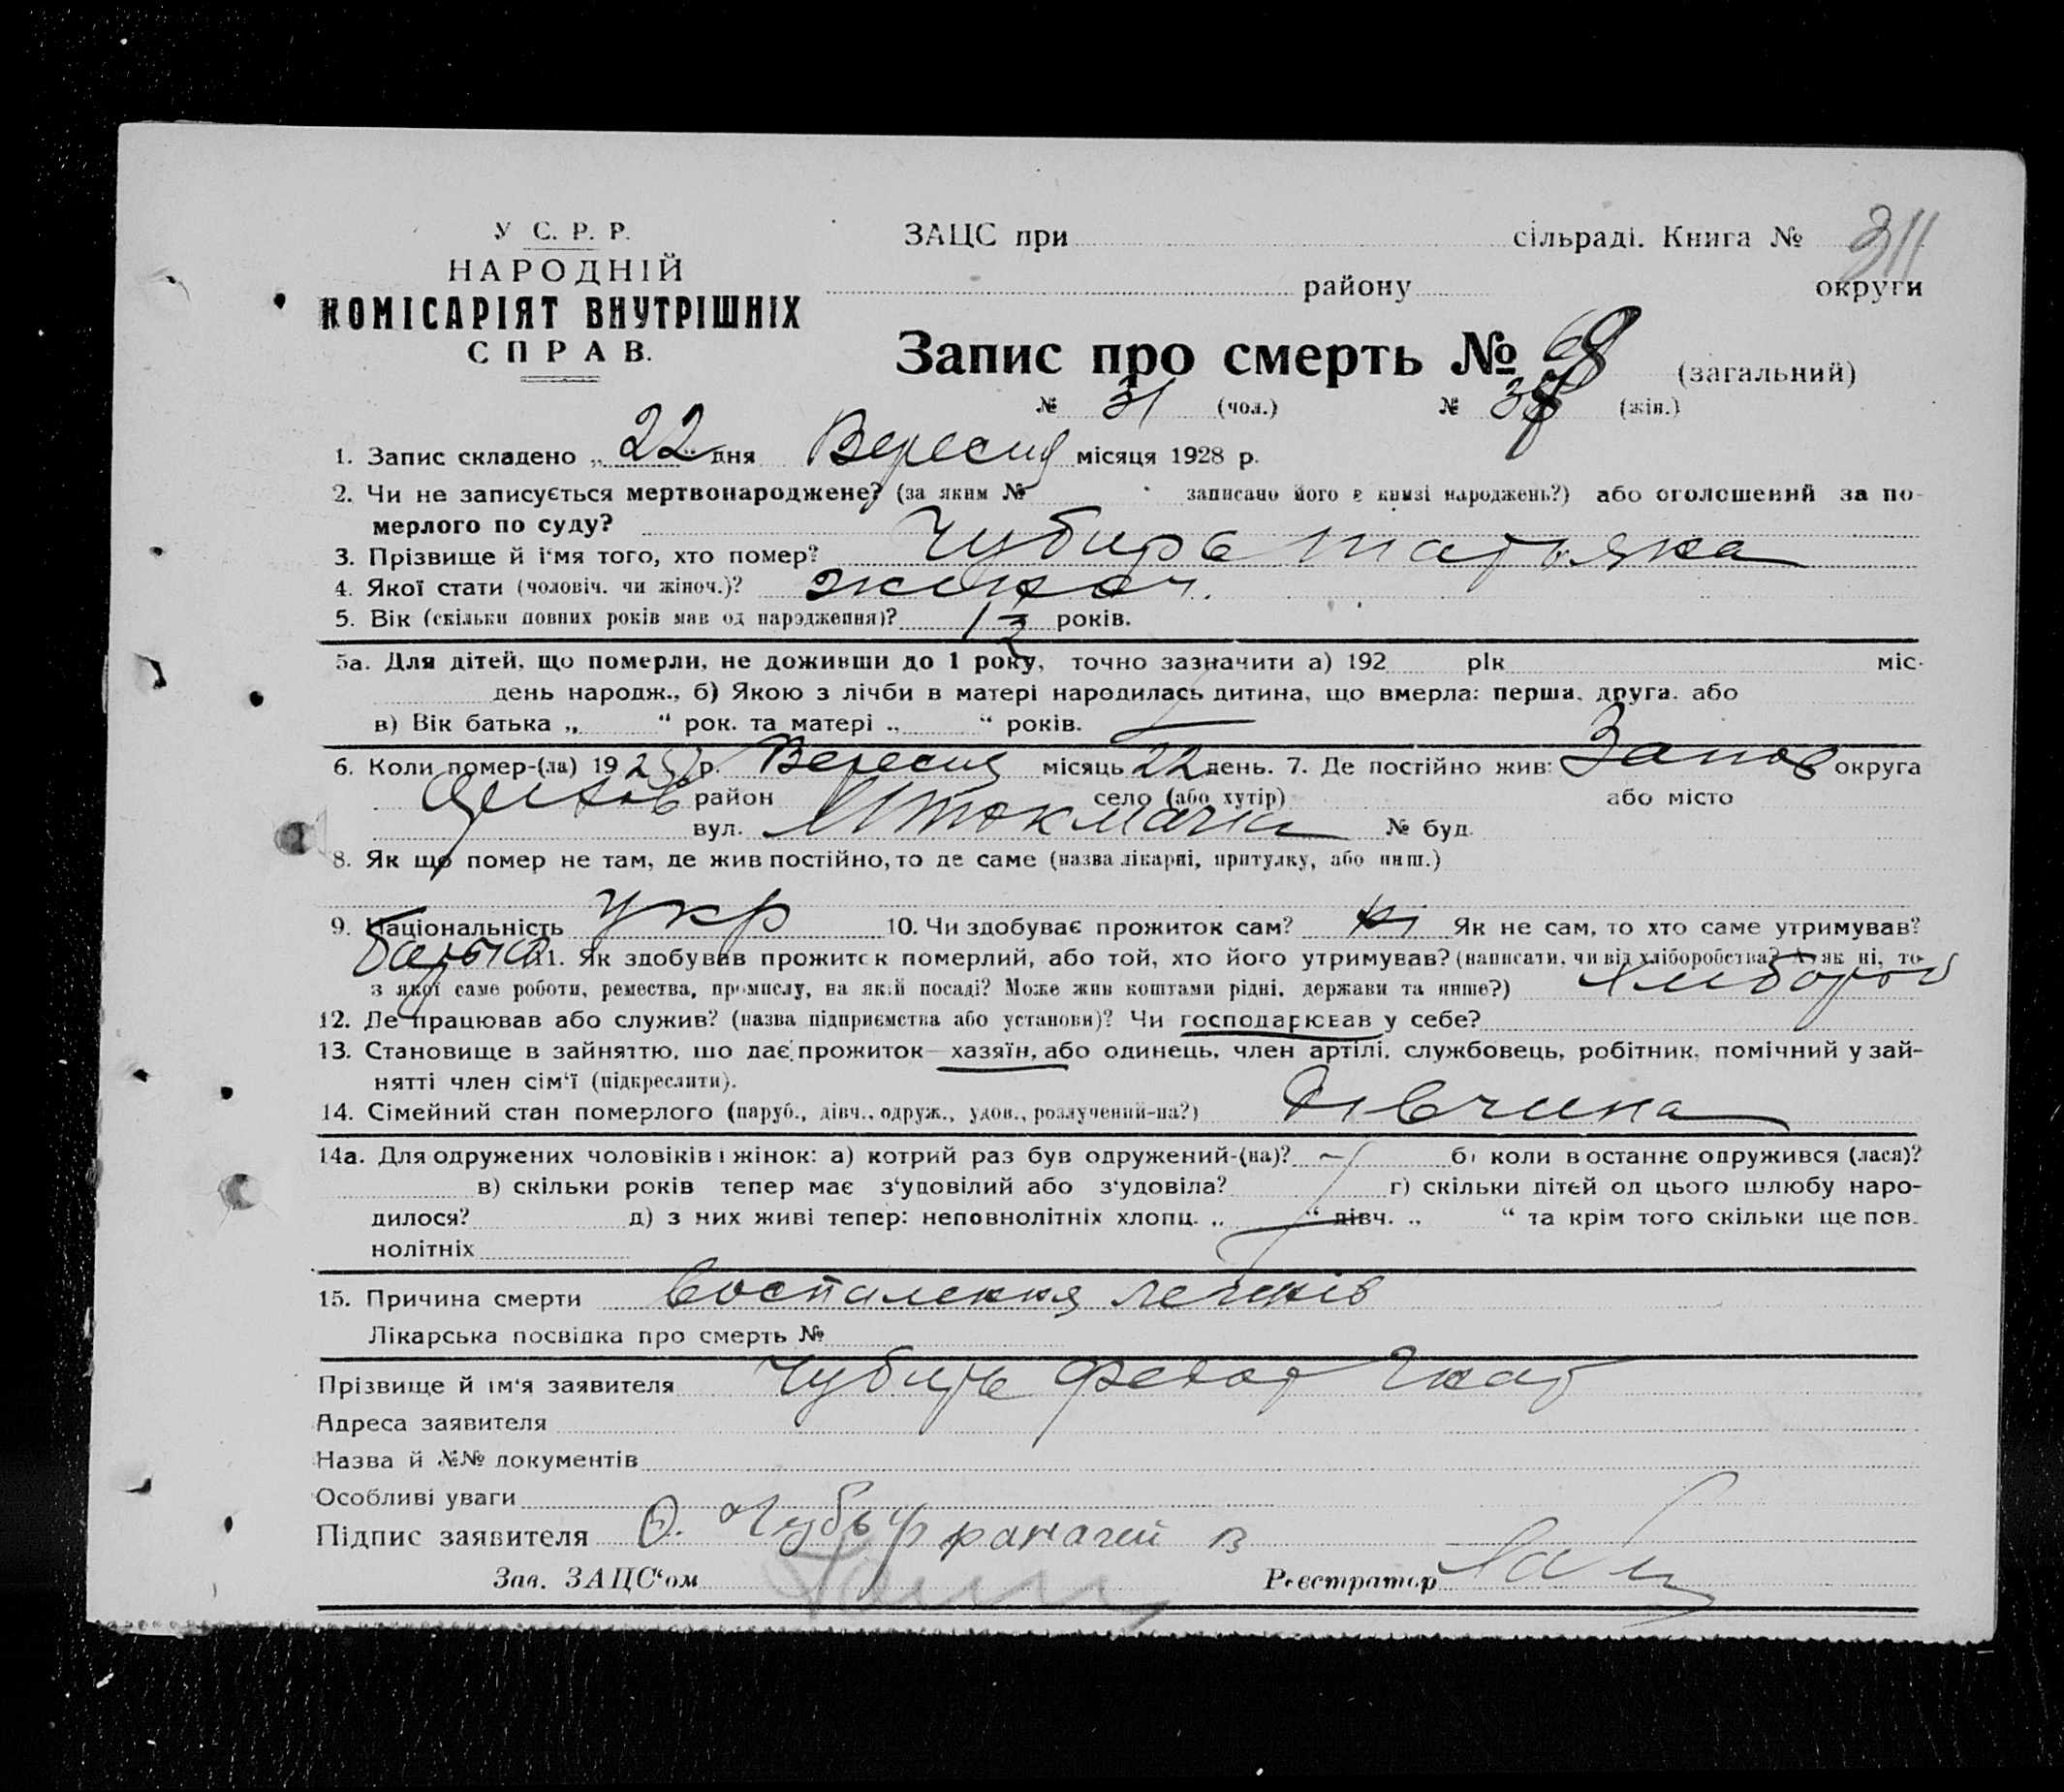 311
У С. Р. Р.
НАРОДНІЙ
КОМІСАРІЯТ ВНУТРІШНІХ
СПРАВ.
ЗАЦС при сільраді. Книга №
району округи
Запис про смерть № 68 (загальний)
№ 31 (чол.) № (жін.)
1. Запис складено „22“ дня Вересня місяця 1928 р.
2. Чи не записується мертвонароджене? (за яким № записано його в книзі народжень?) або оголошений за по-
мерлого по суду?
3. Прізвище й ім'я того, хто помер? Чубирь Татьяна
4. Якої стати (чоловіч. чи жіноч.)? жіноч.
5. Вік (скільки повних років мав од народження)? 13 років.
5а. Для дітей, що померли, не доживши до 1 року, точно зазначити а) 192 рік міс.
день народж., б) Якою з лічби в матері народилась дитина, що вмерла: перша, друга, або
в) Вік батька „ “ рок. та матері „ “ років.
6. Коли помер-(ла) 1928 р. Вересня місяць 22 день. 7. Де постійно жив: Запор округа
Оріхов район село (або хутір) або місто
вул. М Токмачка № буд.
8. Як що помер не там, де жив постійно, то де саме (назва лікарні, притулку, або инш.)
9. Національність укр 10. Чи здобуває прожиток сам? ні Як не сам, то хто саме утримував?
батько 11. Як здобував прожиток померлий, або той, хто його утримував? (написати, чи від хліборобства? А як ні, то
з якої саме роботи, ремества, промислу, на якій посаді? Може жив коштами рідні, держави та инше?) хлибороб
12. Де працював або служив? (назва підприємства або установи)? Чи господарював у себе?
13. Становище в зайняттю, що дає прожиток—хазяїн, або одинець, член артілі, службовець, робітник, помічний у зай-
нятті член сім'ї (підкреслити).
14. Сімейний стан померлого (паруб., дівч., одруж., удов., розлучений-на?) Дівчина
14а. Для одружених чоловіків і жінок: а) котрий раз був одружений-(на)? — б) коли в останнє одружився (лася)?
в) скільки років тепер має з'удовілий або з'удовіла? г) скільки дітей од цього шлюбу наро-
дилося? д) з них живі тепер: неповнолітніх хлопц. „ “ дівч. „ “ та крім того скільки ще пов-
нолітніх
15. Причина смерти воспалення легків
Лікарська посвідка про смерть №
Прізвище й ім'я заявителя Чубирь Федор Гнат
Адреса заявителя
Назва й №№ документів
Особливі уваги
Підпис заявителя Ѳ. Чубыр
Зав. ЗАЦС'ом Реєстратор